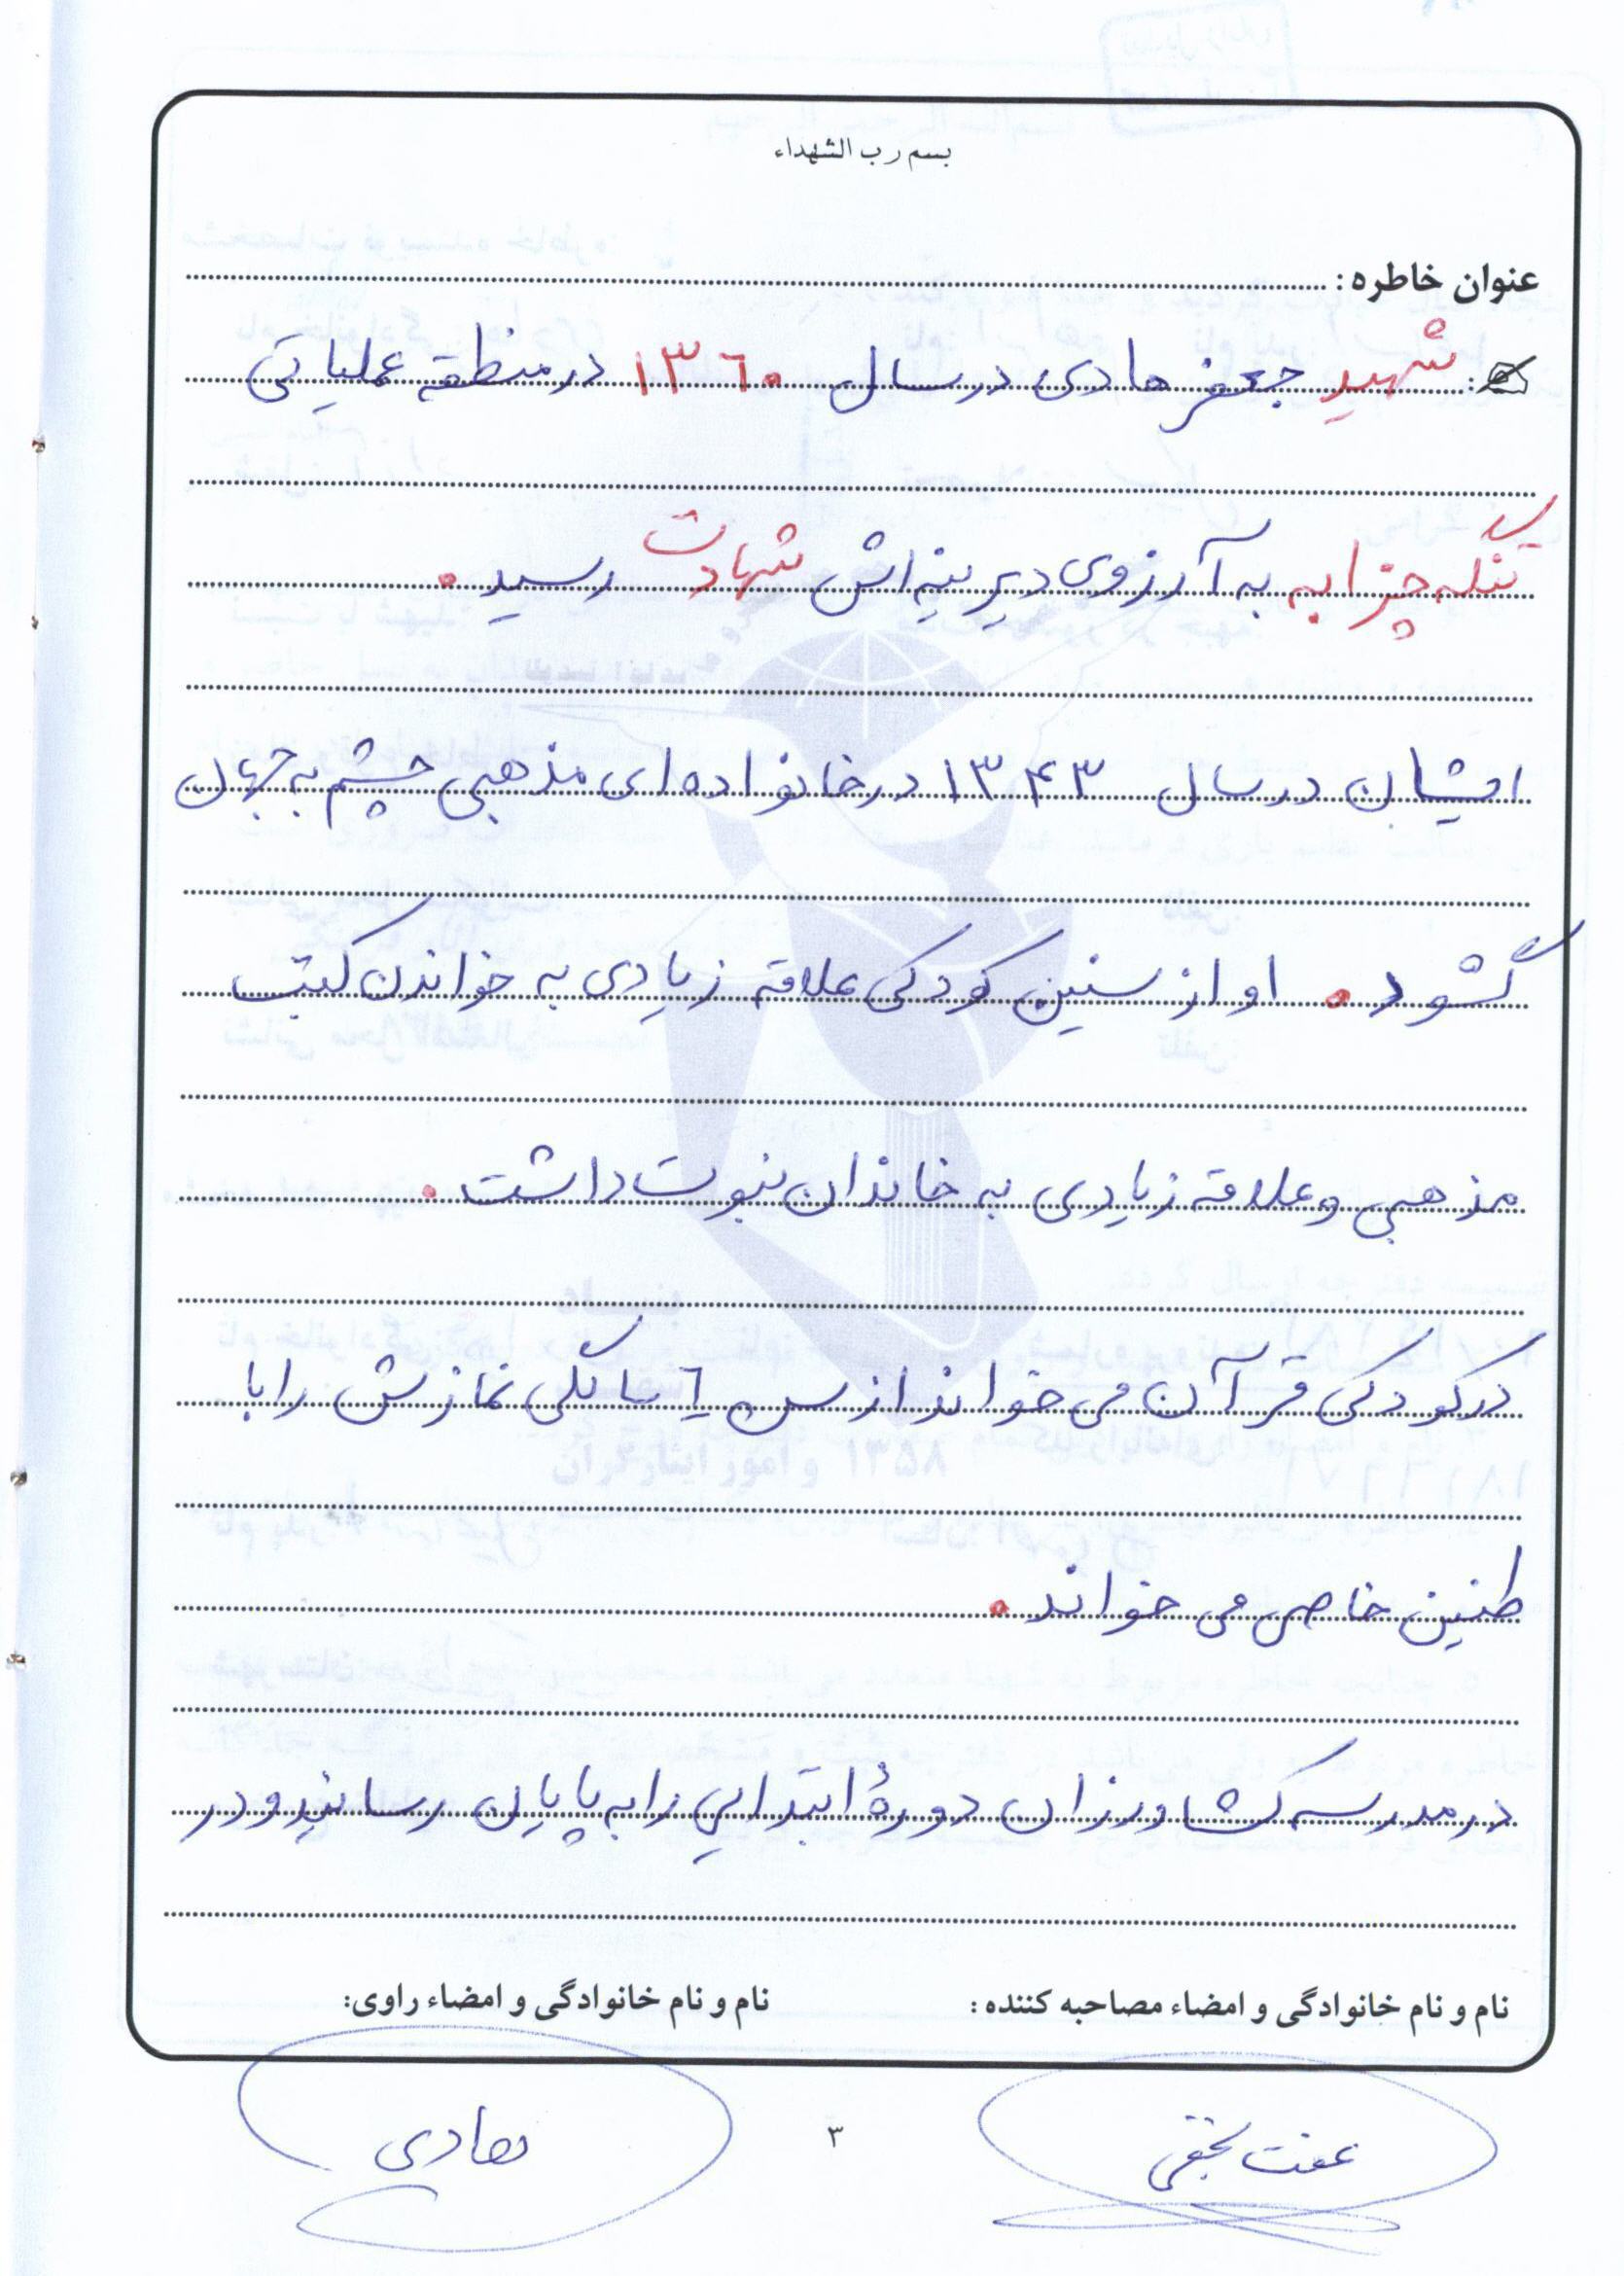 بسم رب الشهداء
عنوان خاطره:
شهید جعفر هادی در سال ۱۳۶۰ در منطقه عملیاتی
تنگه چزابه به آرزوی دیرینه‌اش شهادت رسید.
ایشان در سال ۱۳۴۳ در خانواده‌ای مذهبی چشم به جهان
گشود. او از سنین کودکی علاقه زیادی به خواندن کتب
مذهبی و علاقه زیادی به خاندان نبوت داشت.
در کودکی قرآن می خواند از سن ۶ سالگی نمازش را با
طنین خاصی می خواند.
در مدرسه کشاورزان دورهٔ ابتدایی را به پایان رسانید و در
نام و نام خانوادگی و امضاء مصاحبه کننده:
نام و نام خانوادگی و امضاء راوی:
عفت
هادی
۳